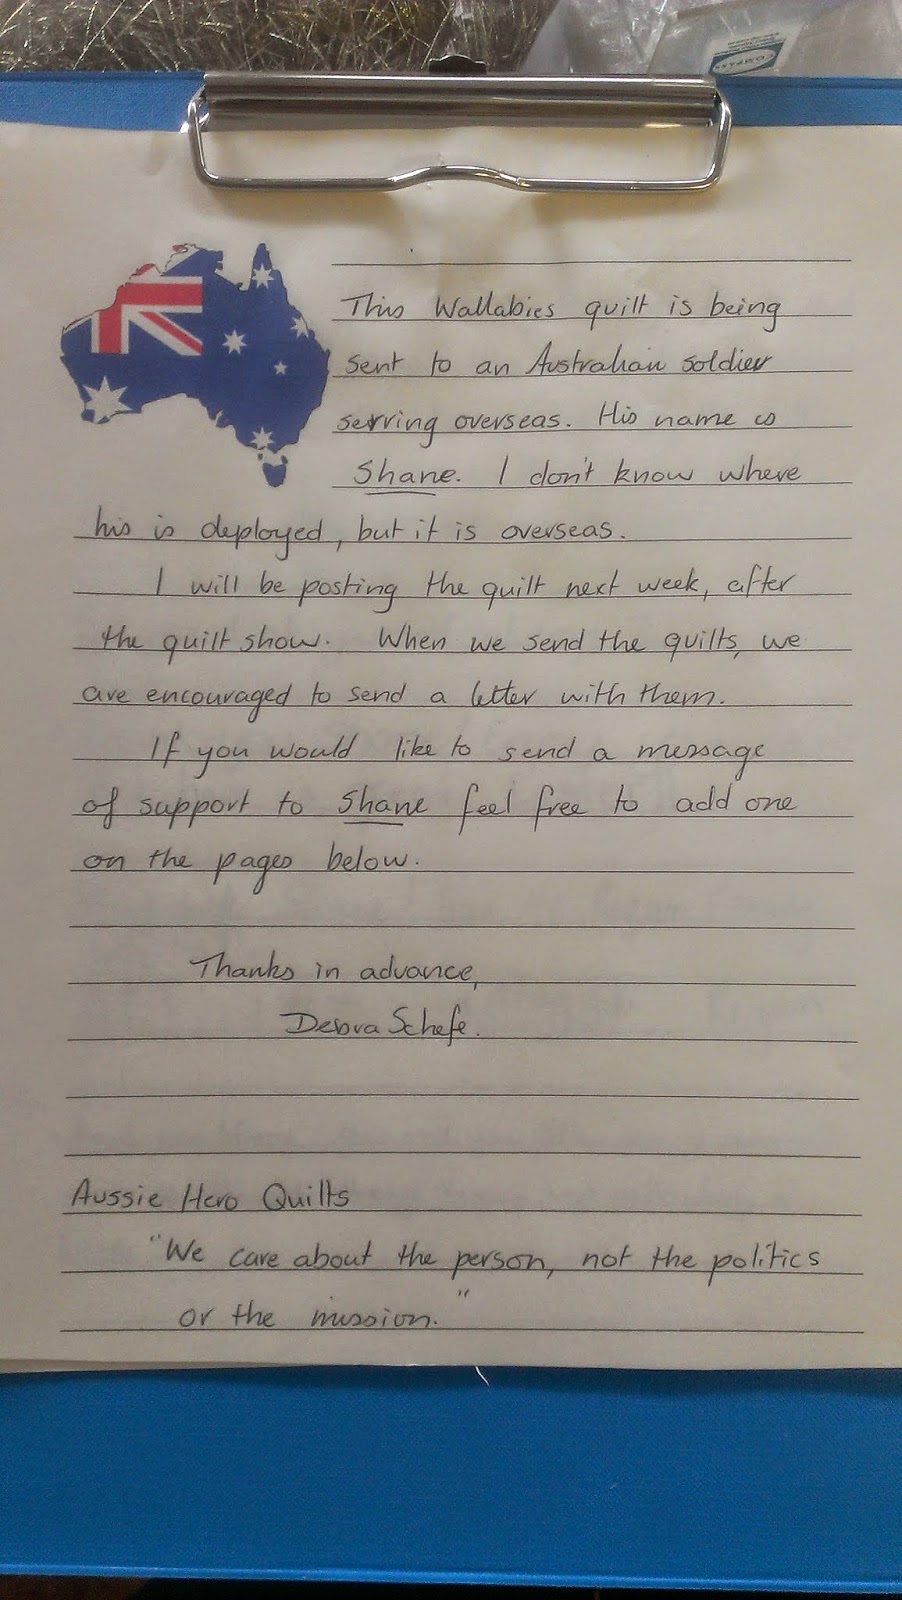 COMPASS
This Wallabies quilt is being
sent to an Australian soldier
serving overseas. His name is
Shane. I don't know where
his is deployed, but it is overseas.
I will be posting the quilt next week, after
the quilt show. When we send the quilts, we
are encouraged to send a letter with them.
If you would like to send a message
of support to Shane feel free to add one
on the pages below.
Thanks in advance,
Debra Schefe.
Aussie Hero Quilts
"We care about the person, not the politics
or the mission."